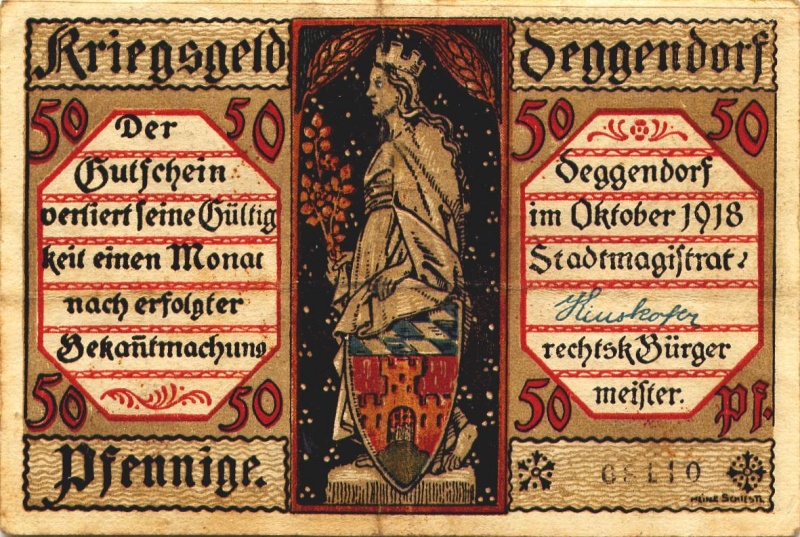 Kriegsgeld Deggendorf
50 50
Der
Gutschein
verliert seine Gültig
keit einen Monat
nach erfolgter
Bekan̄tmachung
50 50
Pfennige.
50 50
Deggendorf
im Oktober 1918
Stadtmagistrat:
rechtsk Bürger
meister.
50 Pf.
HEINZ SCHIESTL